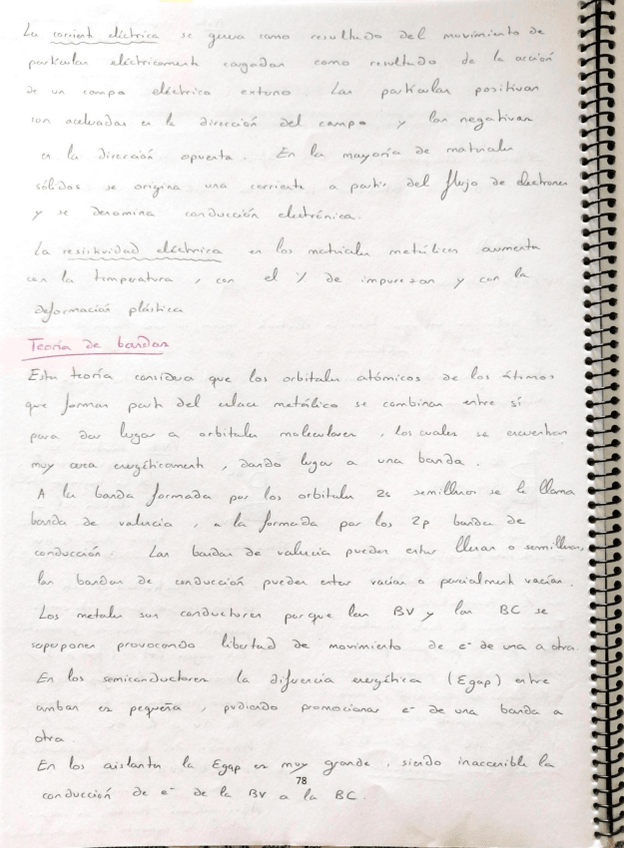 La corriente eléctrica se genera como resultado del movimiento de
partículas eléctricamente cargadas como resultado de la acción
de un campo eléctrico externo. Las partículas positivas
son aceleradas en la dirección del campo y las negativas
en la dirección opuesta. En la mayoría de materiales
sólidos se origina una corriente a partir del flujo de electrones
y se denomina conducción electrónica.
La resistividad eléctrica en los materiales metálicos aumenta
con la temperatura, con el % de impurezas y con la
deformación plástica
Teoría de bandas
Esta teoría considera que los orbitales atómicos de los átomos
que forman parte del enlace metálico se combinan entre sí
para dar lugar a orbitales moleculares, los cuales se encuentran
muy cerca energéticamente, dando lugar a una banda.
A la banda formada por los orbitales 2s semillenos se le llama
banda de valencia, a la formada por los 2p banda de
conducción. Las bandas de valencia pueden estar llenas o semillenas,
las bandas de conducción pueden estar vacías o parcialmente vacías.
Los metales son conductores porque las BV y las BC se
superponen provocando libertad de movimiento de e⁻ de una a otra.
En los semiconductores la diferencia energética (Egap) entre
ambas es pequeña, pudiendo promocionar e⁻ de una banda a
otra.
En los aislantes la Egap es muy grande, siendo inaccesible la
78
conducción de e⁻ de la BV a la BC.